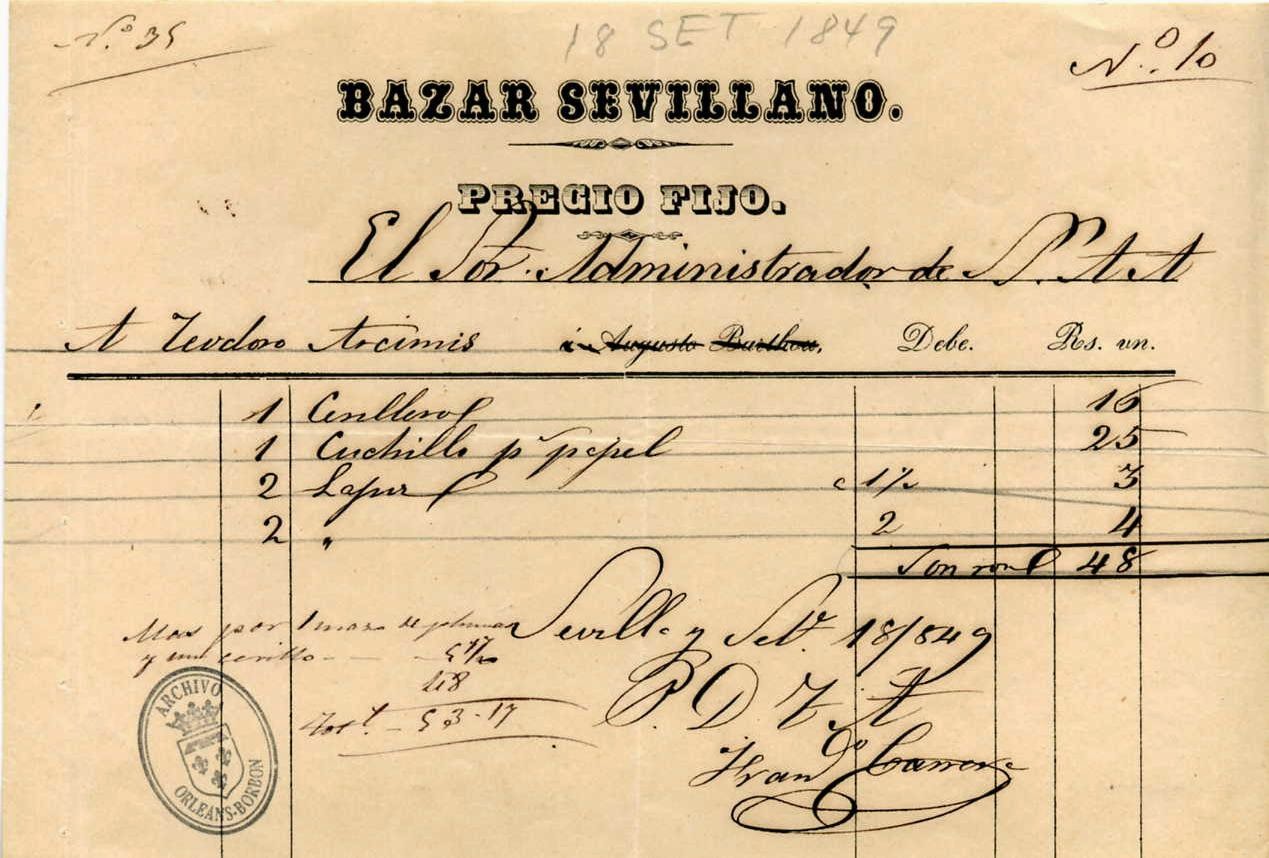 Nº 35
18 SET 1849
Nº 10
BAZAR SEVILLANO.
PRECIO FIJO.
El Sor. Administrador de S. A A
A Teodoro Arcimis á Augusto Barthou, Debe. Rs. vn.
1 Cerillero 16
1 Cuchillo pª papel 25
2 Lapiz a 1½ 3
2 " 2 4
Son rvon 48
Mas por 1 mazo de plumas
y una cerillo - - 5 17
48
Tot.l - 53-17
Sevilla y Set.e 18/849
P. D T A
Fran.do Carrera
ARCHIVO
ORLEANS-BORBON